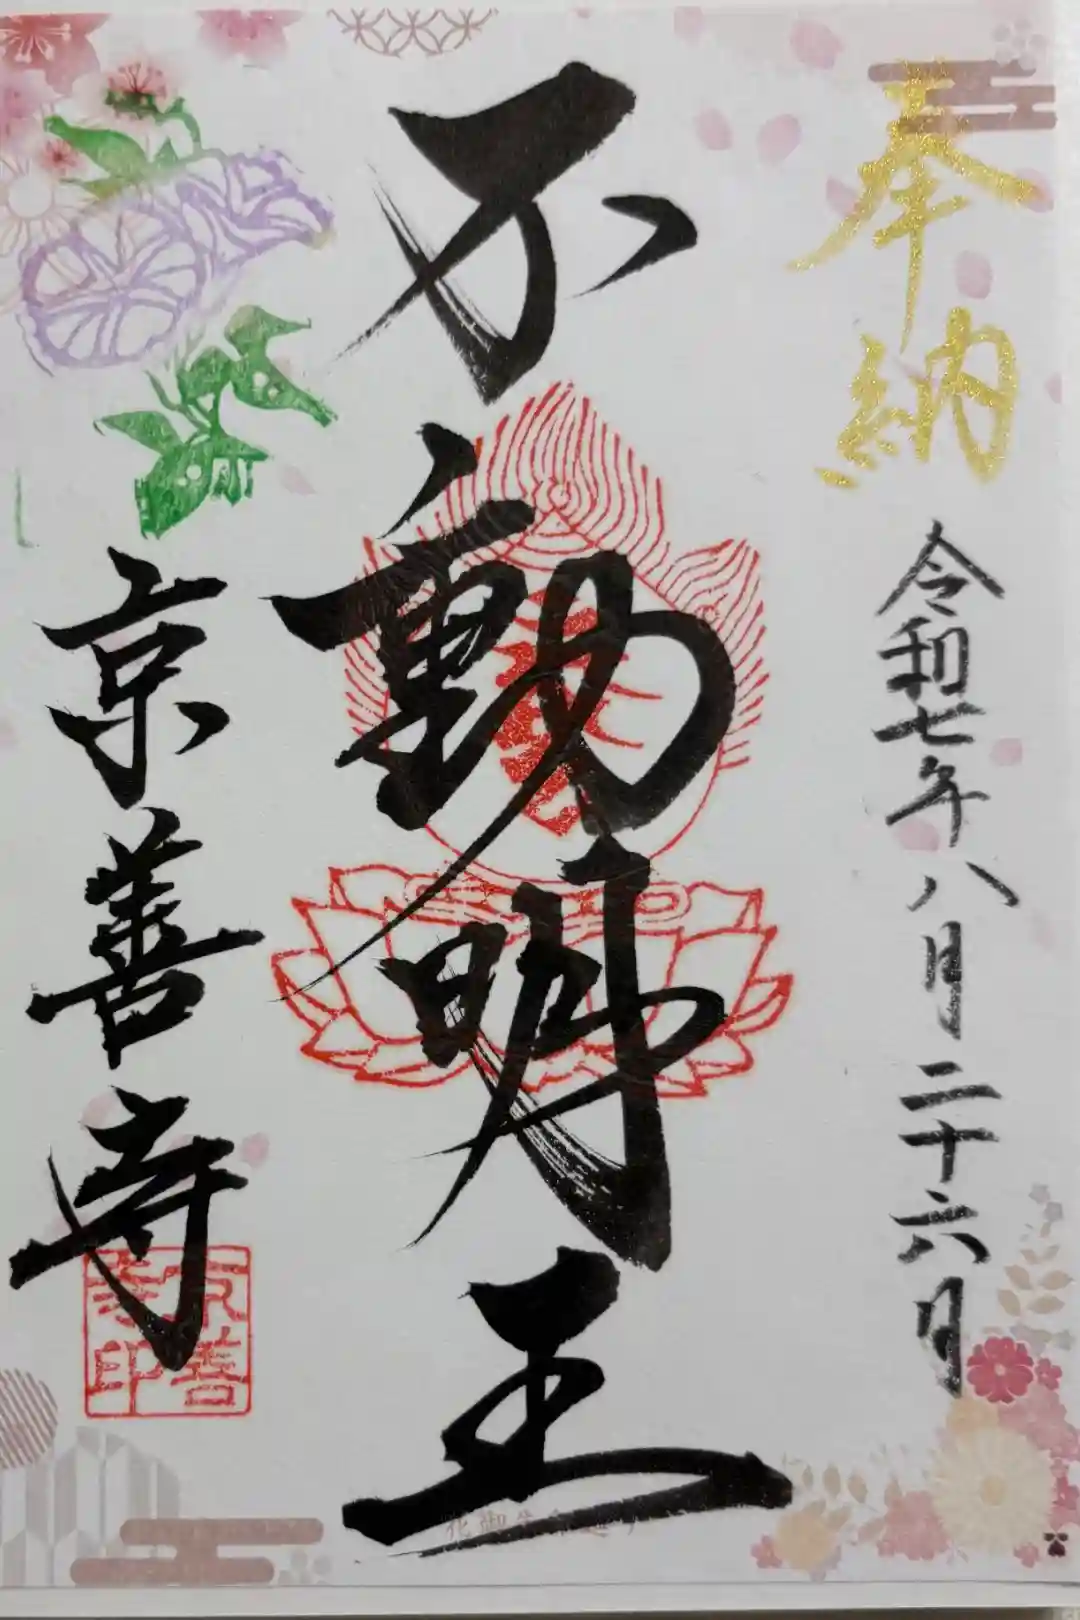 奉納
令和七年八月二十六日
不動明王
京善寺
京善寺印